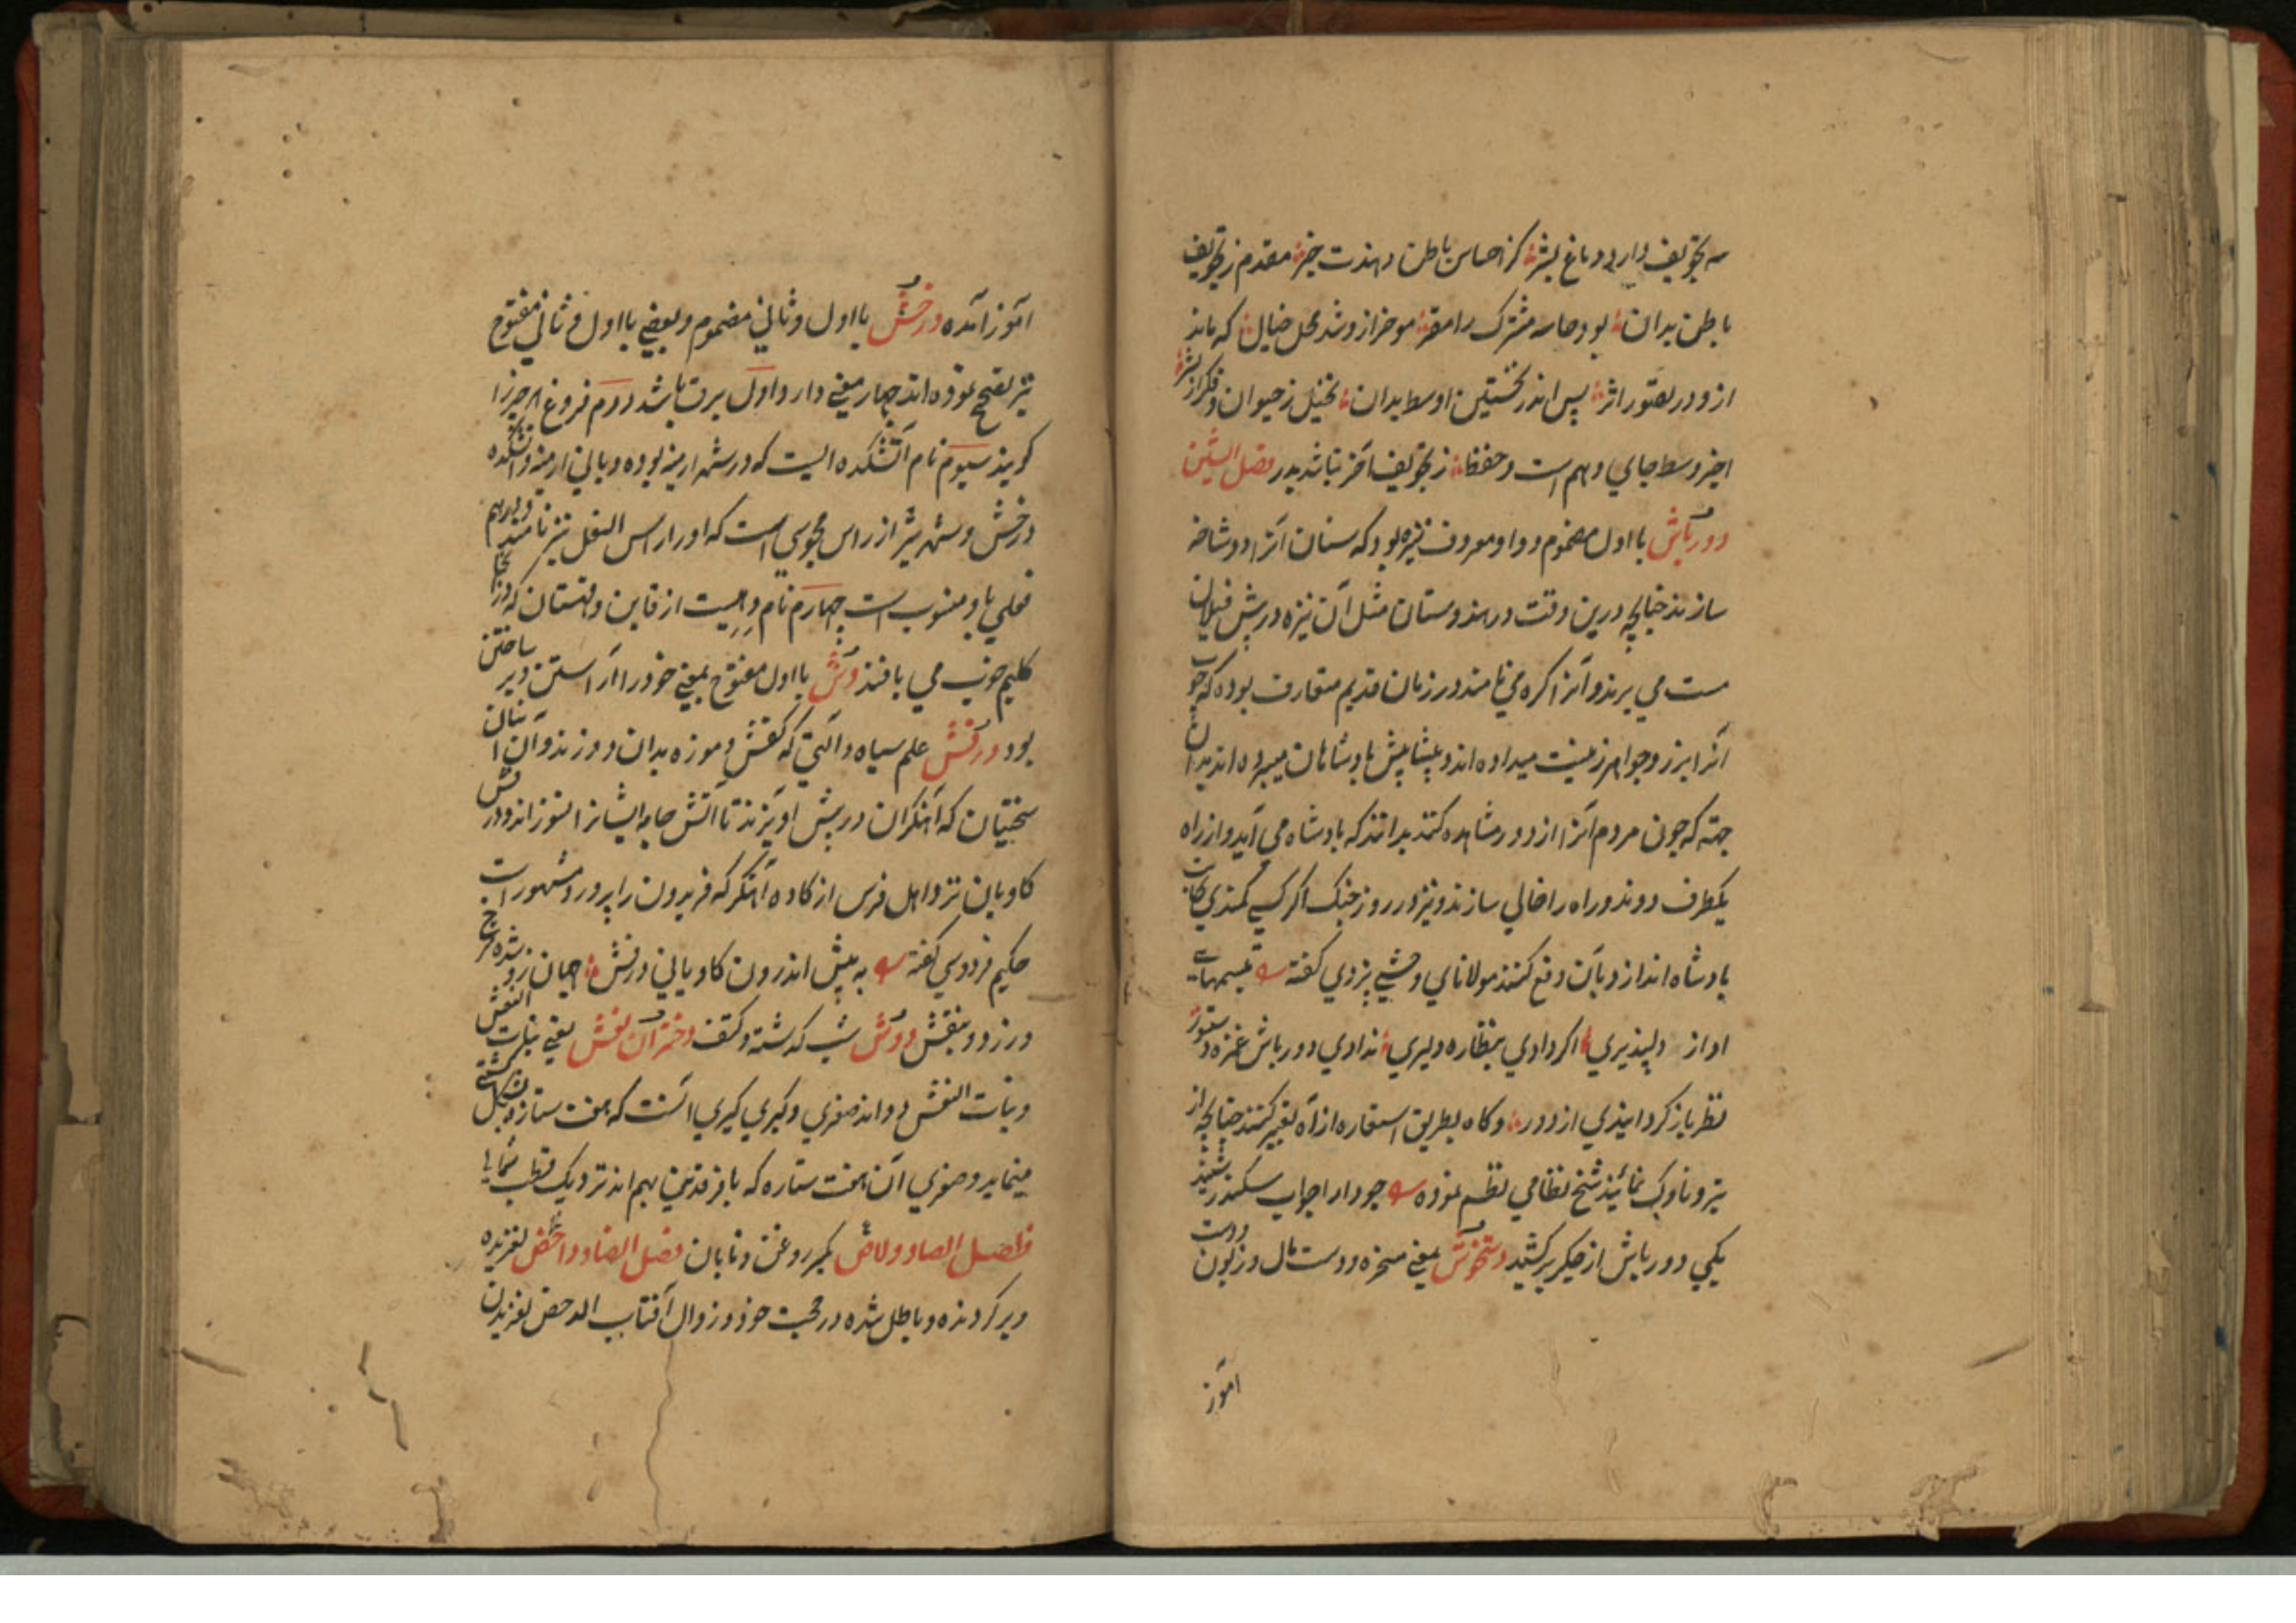 سه تجویف دارد دماغ بشر کز احساس باطن دهندت خبر مقدم ز تجویف
باطن بدان بود حاسه مشترک را مقر موخر ازو شد محل خیال که ماند
ازو در تصور اثر پس اندر نخستین اوسط بدان تخیل ز حیوان و فکر از بشر
اخیر وسط جای وهم است و حفظ ز تجویف آخر نباشد بدر فصل الشین
دورباش با اول مضموم و واو معروف نیزه بود که سنان آنرا دو شاخه
سازند چنانچه درین وقت در هندوستان مثل آن نیزه در پیش فیلان
مست می برند و آنرا کره می نامند در زمان قدیم متعارف بوده که چوب
آنرا بزر و جواهر زینیت میداده اند و پیشاپیش پادشاهان میبرده اند بدان
جهته که چون مردم آنرا از دور مشاهده کنند بدانند که بادشاه می آید و از راه
یکطرف روند و راه را خالی سازند و نیز در روز جنک اکر کسی کمندی بجانب
بادشاه اندازد بآن دفع کنند مولانای وحشی یزدی کفته تبسمهات
اداز دلپذیری اکر دادی بنظاره دلیری ندادی دورباش غمزه دستور
نظر باز کردانیدی از دور و کاه بطریق استعاره از آه تعبیر کنند چنانچه از
تیر و ناوک نمایند شیخ نظامی نظم نموده چو دارا جواب سکندر شنید
یکی دورباش از جکر برکشید دستخوش بمعنی مسخره و دست مال و زبون و دست
آموز
آموز آمده درخش با اول و ثانی مضموم و بعضی با اول و ثانی مفتوح
نیز تصحیح نموده اند چهار معنی دارد اول برق باشد دوم فروغ هر چیز را
کویند سیوم نام آتشکده ایست که در شهر ارمنیه بوده و بانی ارمنیه و آتشکده
درخش و شهر شیز از راس مجوسی است که اورا راس البغل نیز نامند و درهم
بغلی باو منسوب است چهارم نام دهیست از قاین و قهستان که در آنجا
کلیم خوب می بافند دش با اول مفتوح بمعنی خود را آراستن و پر ساختن
بود درفش علم سیاه و آلتی که کفش و موزه بدان دوزند و آن انبان
سختیان که آهنکران در پیش آویزند تا آتش جامه ایشانرا نسوزاند و درفش
کاویان نزد اهل فرس از کاوه آهنکر که فریدون را پرورد مشهور است
حکیم فردوسی کفته به پیش اندرون کاویانی درفش جهان زو شده سرخ
و زرد و بنفش دوش شب که کذشته و کتف دختران نعش یعنی بنات النعش
و بنات النعش دو اند صغری و کبری کبری آنست که هفت ستاره بشکل کشتی
مینماید و صغری آن هفت ستاره که با فرقدین بهم اند نزدیک قطب شمالی
فصل الصاد دلاص بکسر روغن و تابان فصل الضاد داحض لغزیده
و پر کردنده و باطل شده در حجت خود و زوال آفتاب الدحض لغزیدن